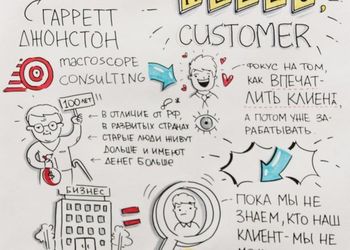 ГАРРЕТТ
ДЖОНСТОН
MACROSCOPE
CONSULTING
CUSTOMER
ФОКУС НА ТОМ,
КАК ВПЕЧАТ-
ЛИТЬ КЛИЕНТА,
А ПОТОМ УЖЕ ЗА-
РАБАТЫВАТЬ.
100 ЛЕТ
→ В ОТЛИЧИЕ ОТ РФ,
В РАЗВИТЫХ СТРАНАХ
→ СТАРЫЕ ЛЮДИ ЖИВУТ
ДОЛЬШЕ И ИМЕЮТ
→ ДЕНЕГ БОЛЬШЕ
БИЗНЕС
ПОКА МЫ НЕ
ЗНАЕМ, КТО НАШ
КЛИЕНТ - МЫ НЕ